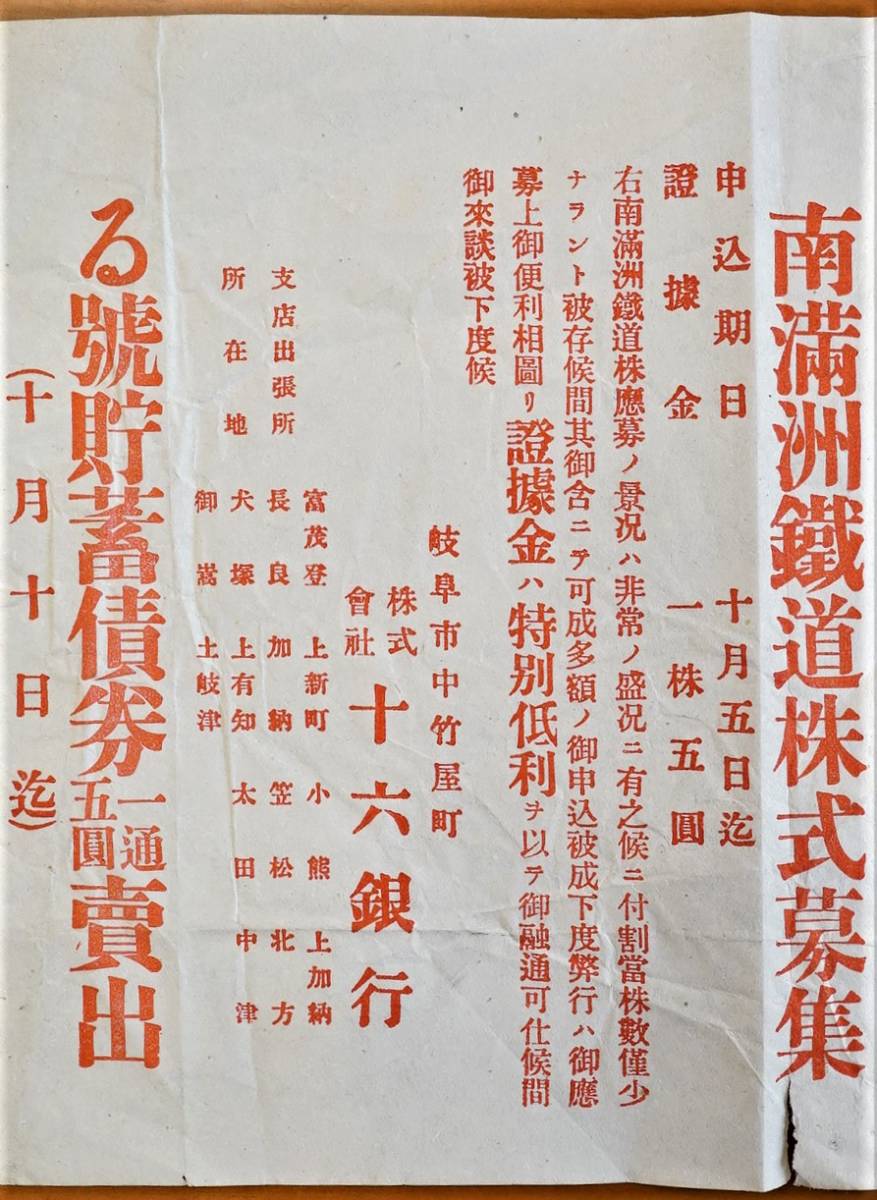 南滿洲鐵道株式募集
申込期日 十月五日迄
證據金 一株五圓
右南滿洲鐵道株應募ノ景况ハ非常ノ盛况ニ有之候ニ付割當株數僅少
ナラント被存候間其御含ニテ可成多額ノ御申込被成下度弊行ハ御應
募上御便利相圖リ證據金ハ特別低利ヲ以テ御融通可仕候間
御來談被下度候
岐阜市中竹屋町
株式會社 十六銀行
支店出張所
所在地
富茂登 上新町 小熊 上加納
長良 加納 笠松 北方
犬塚 上有知 太田 中津
御嵩 土岐津
る號貯蓄債券 一通五圓 賣出
(十月十日迄)